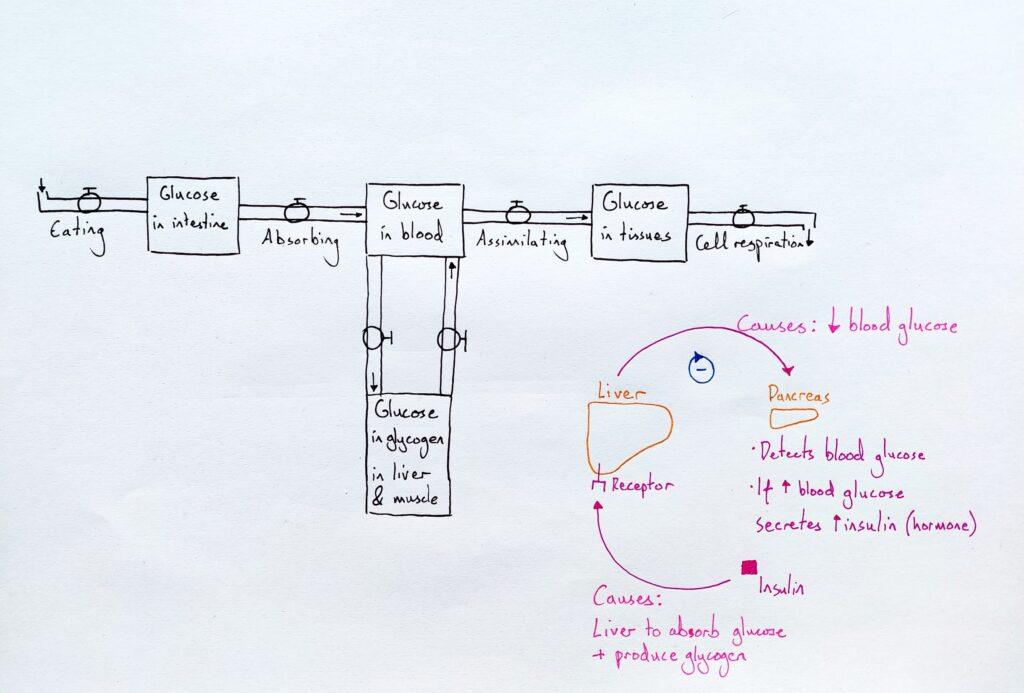 Glucose
in intestine
Glucose
in blood
Glucose
in tissues
Eating
Absorbing
Assimilating
Cell respiration
Glucose
in glycogen
in liver
& muscle
Causes: ↓ blood glucose
−
Liver
Pancreas
Receptor
· Detects blood glucose
· If ↑ blood glucose
secretes ↑ insulin (hormone)
Insulin
Causes:
Liver to absorb glucose
+ produce glycogen